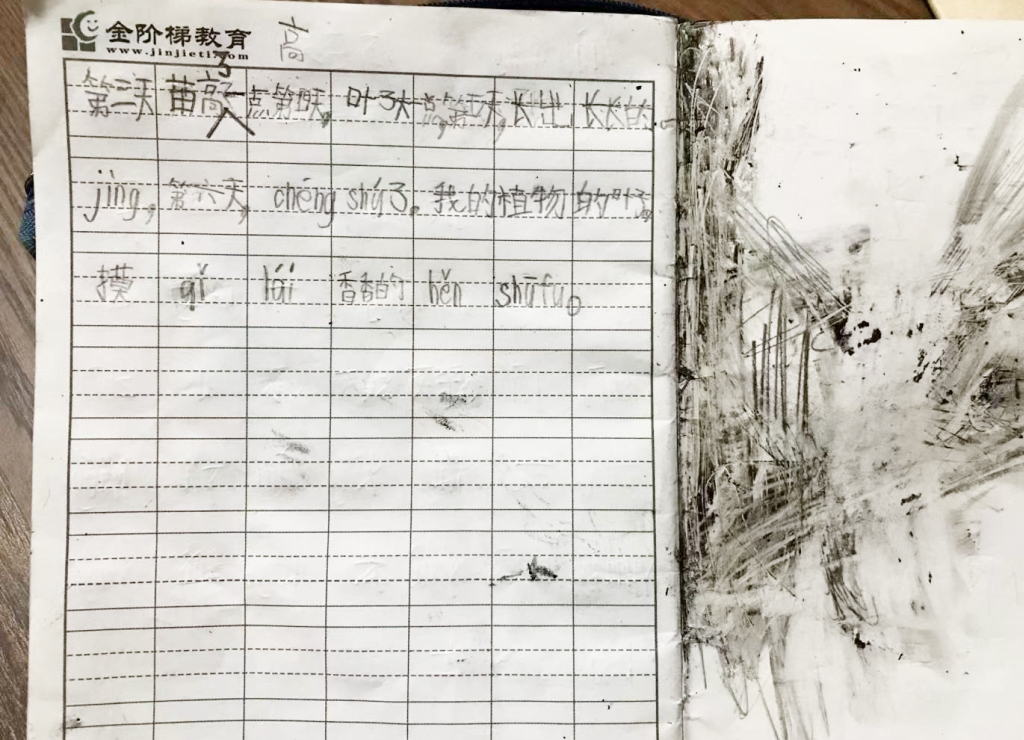 金阶梯教育 高
www.jinjieti.com
第三天 苗高了一点第四天，叶子大一点，第五天，长出，长长的
jìng，第六天，chéng shú了。我的植物的叶子，
摸 qǐ lái 香香的 hěn shūfu。